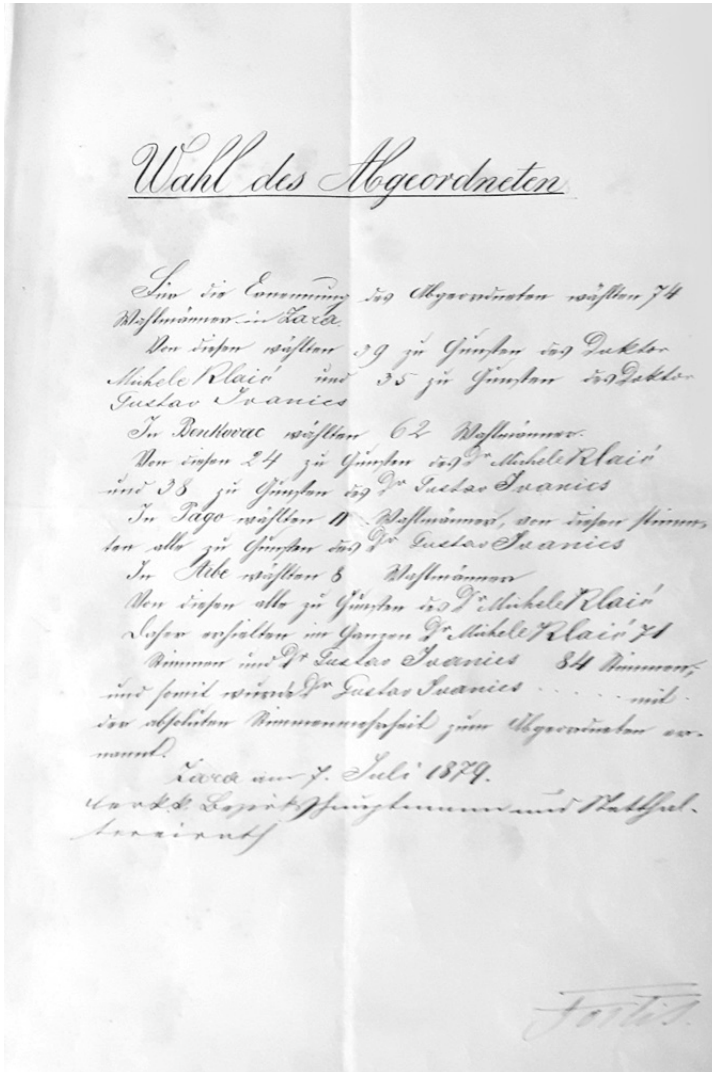 Wahl des Abgeordneten
Für die Ernennung des Abgeordneten wählten 74
Wahlmänner in Zara.
Von diesen wählten 39 zu Gunsten des Doktor
Michele Klaić und 35 zu Gunsten des Doktor
Gustav Ivanics
In Benkovac wählten 62 Wahlmänner.
Von diesen 24 zu Gunsten des Dr Michele Klaić
und 38 zu Gunsten des Dr Gustav Ivanics
In Pago wählten 11 Wahlmänner, von diesen stimm-
ten alle zu Gunsten des Dr Gustav Ivanics
In Arbe wählten 8 Wahlmänner
Von diesen alle zu Gunsten des Dr Michele Klaić
Daher erhielten im Ganzen Dr Michele Klaić 71
Stimmen und Dr Gustav Ivanics 84 Stimmen,
und somit wurde Dr Gustav Ivanics . . . . . mit
der absoluten Stimmenmehrheit zum Abgeordneten er-
nannt.
Zara am 7. Juli 1879.
Der k.k. Bezirkshauptmann und Statthal-
tereirath
Fontis.